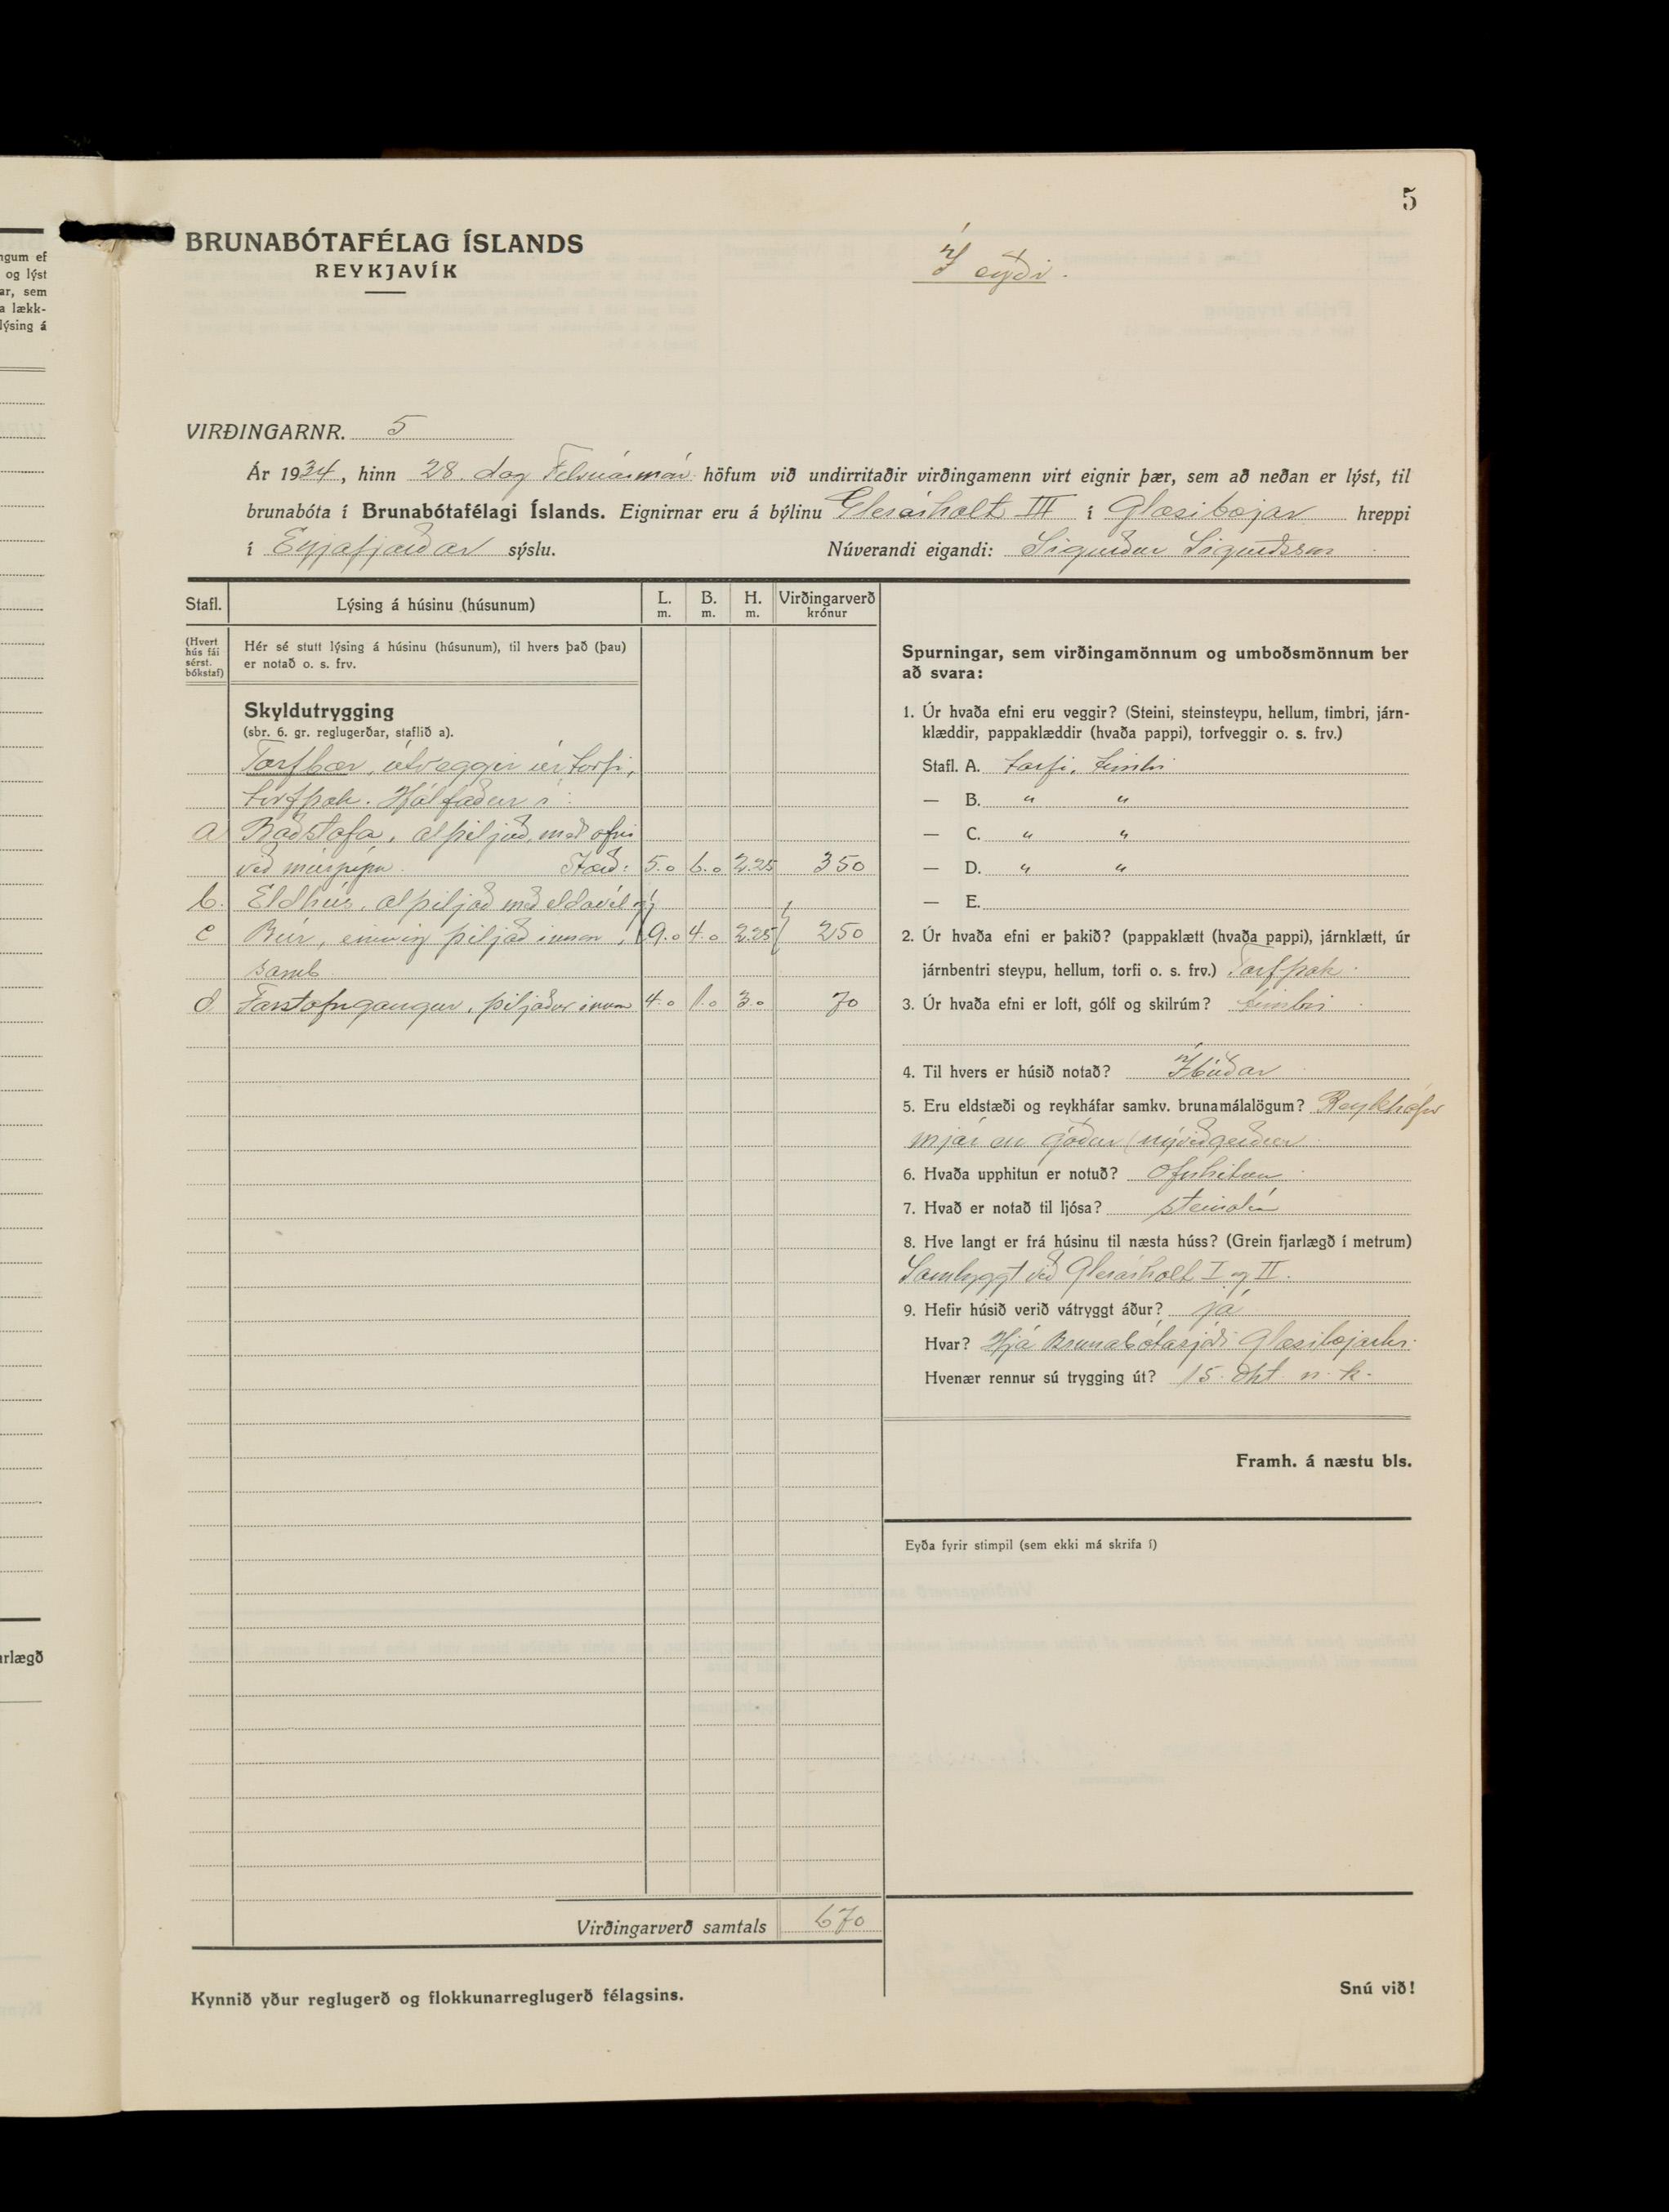 5
BRUNABÓTAFÉLAG ÍSLANDS
REYKJAVÍK
Í eyði.
VIRÐINGARNR. 5
Ár 1934, hinn 28. dag Febrúarmán. höfum við undirritaðir virðingamenn virt eignir þær, sem að neðan er lýst, til
brunabóta í Brunabótafélagi Íslands. Eignirnar eru á býlinu Glerárholt III í Glæsibæjar hreppi
í Eyjafjarðar sýslu. Núverandi eigandi: Sigurður Sigurðsson
Stafl. Lýsing á húsinu (húsunum) L. m. B. m. H. m. Virðingarverð krónur
(Hvert hús fái sérst. bókstaf)
Hér sé stutt lýsing á húsinu (húsunum), til hvers það (þau)
er notað o. s. frv.
Skyldutrygging
(sbr. 6. gr. reglugerðar, staflið a).
Torfbær, útveggir úr torfi,
torfþak. Hólfaður í:
a Baðstofa, alþiljuð, með ofni
við múrpípu. Stærð: 5.0 6.0 2.25 350
b. Eldhús, alþiljað með eldavél og
c Búr, einnig þiljað innan, 9.0 4.0 2.25 250
samb.
d Forstofugangur, þiljaður innan 4.0 1.0 3.0 70
Virðingarverð samtals 670
Kynnið yður reglugerð og flokkunarreglugerð félagsins.
Spurningar, sem virðingamönnum og umboðsmönnum ber
að svara:
1. Úr hvaða efni eru veggir? (Steini, steinsteypu, hellum, timbri, járn-
klæddir, pappaklæddir (hvaða pappi), torfveggir o. s. frv.)
Stafl. A. torfi, timbri
— B. " "
— C. " "
— D. " "
— E.
2. Úr hvaða efni er þakið? (pappaklætt (hvaða pappi), járnklætt, úr
járnbentri steypu, hellum, torfi o. s. frv.) Torfþak
3. Úr hvaða efni er loft, gólf og skilrúm? timbri
4. Til hvers er húsið notað? Íbúðar
5. Eru eldstæði og reykháfar samkv. brunamálalögum? Reykháfur
mjór en góður (nýviðgerður
6. Hvaða upphitun er notuð? Ofnhitun
7. Hvað er notað til ljósa? steinolía
8. Hve langt er frá húsinu til næsta húss? (Grein fjarlægð í metrum)
Sambyggt við Glerárholt I og II.
9. Hefir húsið verið vátryggt áður? já
Hvar? Hjá Brunabótasjóði Glæsibæjarhr.
Hvenær rennur sú trygging út? 15. okt. n. k.
Framh. á næstu bls.
Eyða fyrir stimpil (sem ekki má skrifa í)
Snú við!